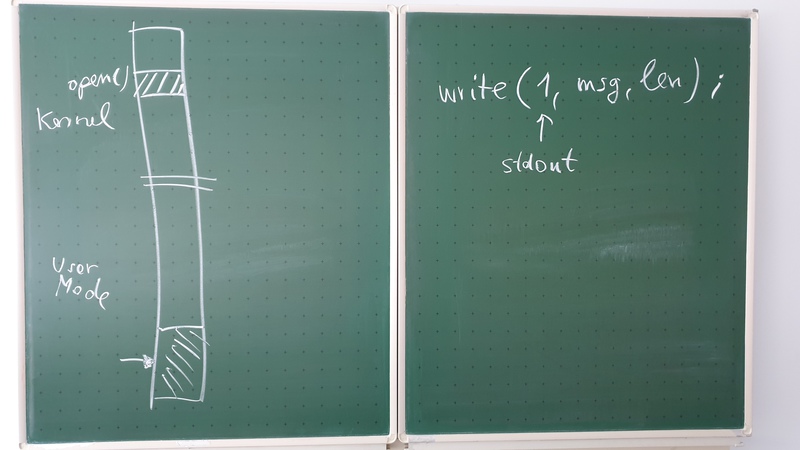 open()
Kernel
User
Mode
write(1, msg, len);
stdout